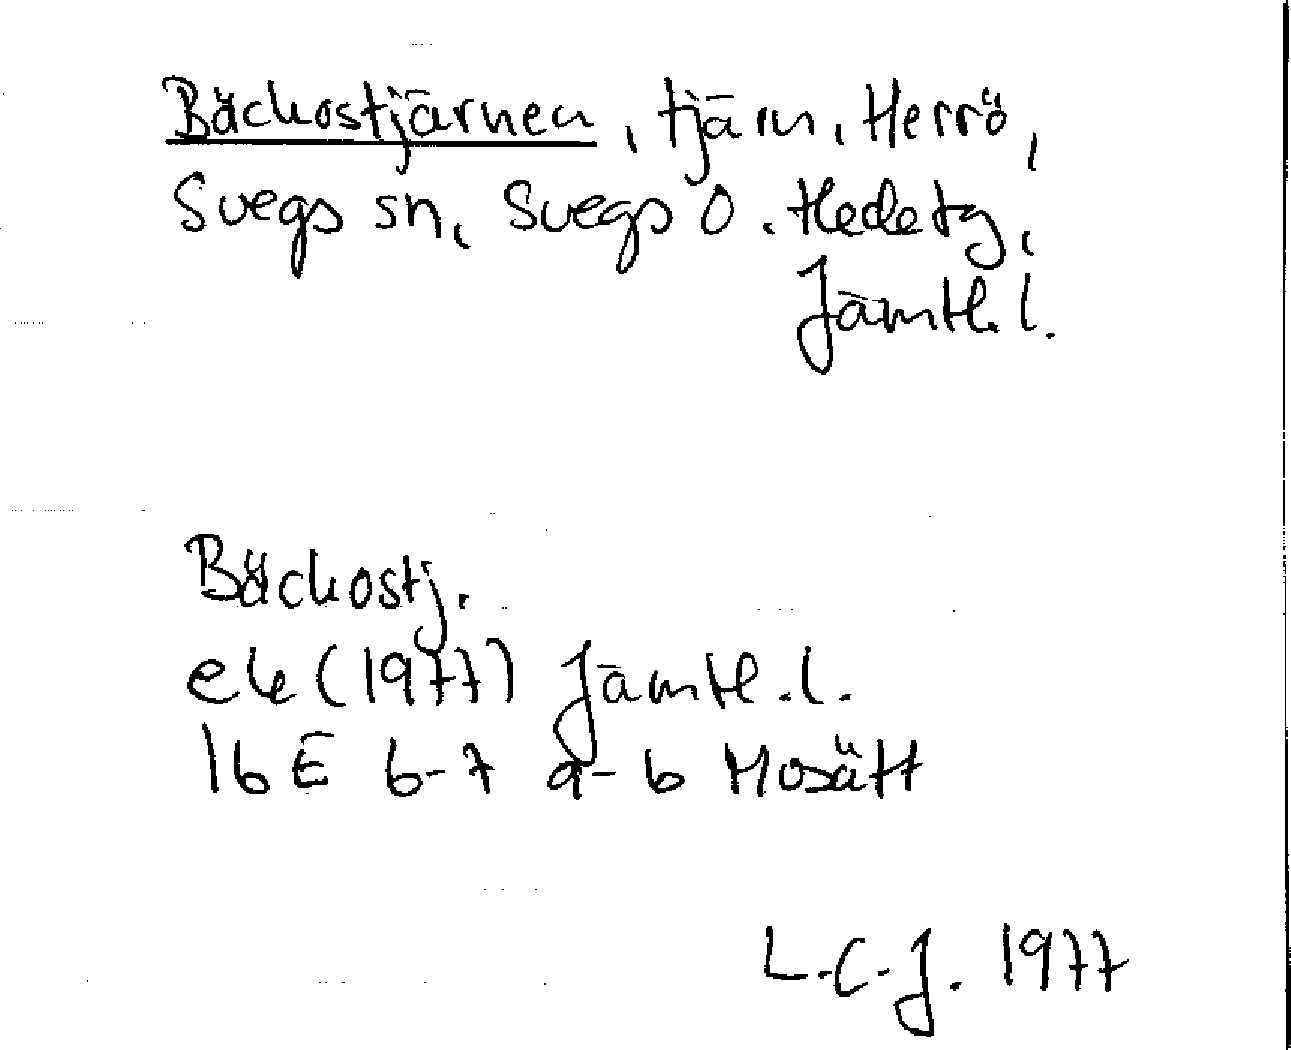 Bäckostjärnen, tjärn, Herrö,
Svegs sn, Svegs O. Hedetg,
Jämtl. l.
Bäckostj.
ek (1977) Jämtl. l.
16 E 6-7 a-b Mosätt
L.-C.J. 1977